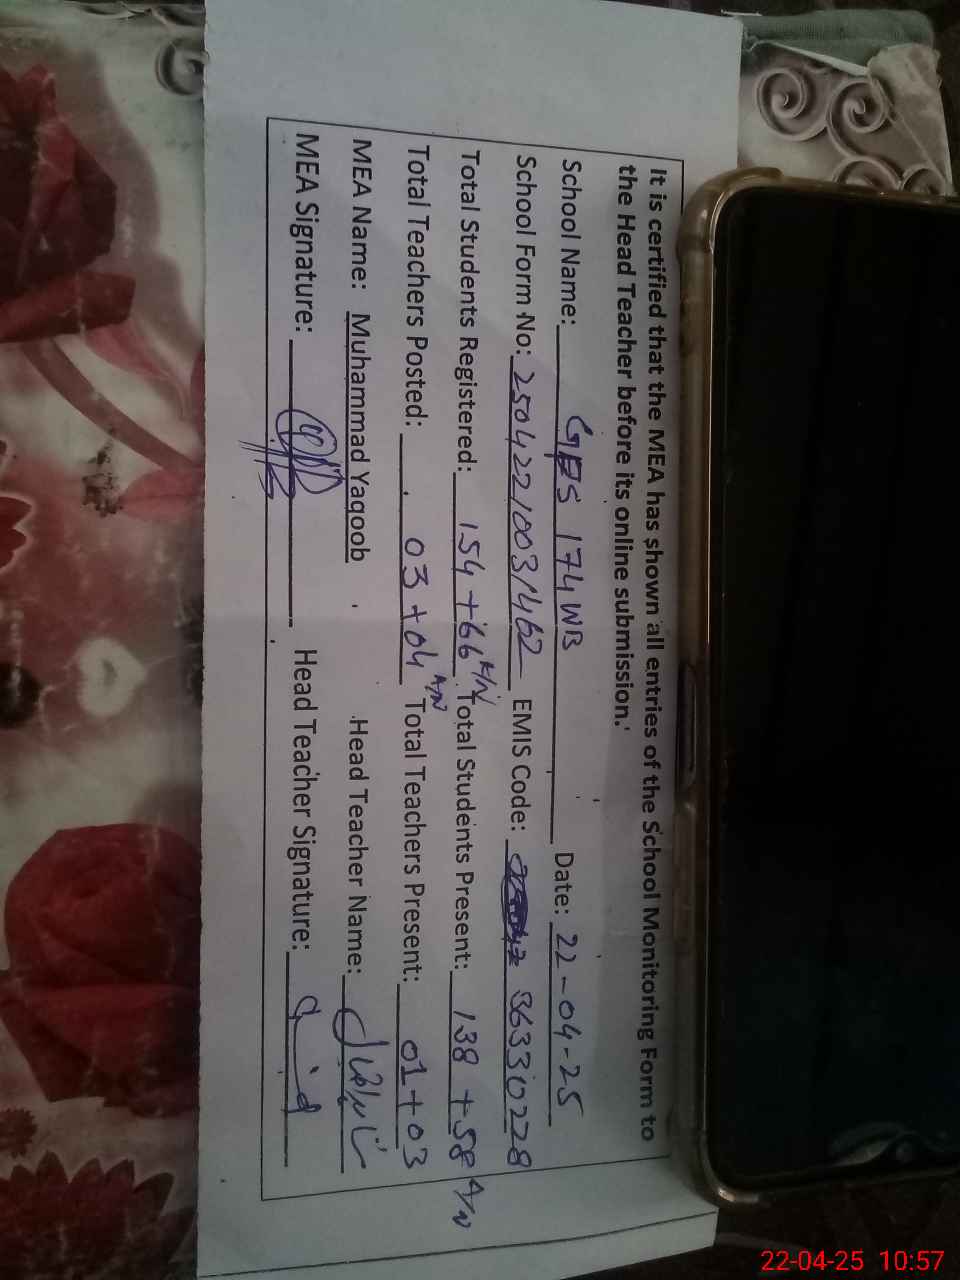 It is certified that the MEA has shown all entries of the School Monitoring Form to
the Head Teacher before its online submission.
School Name: GPS 174 WB Date: 22-04-25
School Form No: 25042210031462 EMIS Code: 36330228
Total Students Registered: 154 + 66 A/N Total Students Present: 138 + 58 A/N
Total Teachers Posted: 03 + 04 A/N Total Teachers Present: 01 + 03
MEA Name: Muhammad Yaqoob Head Teacher Name:
MEA Signature: Head Teacher Signature:
22-04-25 10:57